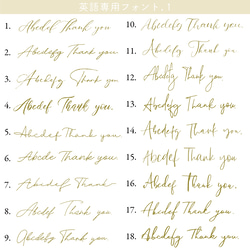 英語専用フォント.1
1. Abcdef Thank you
2. Abcdefg Thank you
3. Abcdefg Thank you
4. Abcdef Thank you.
5. Abcdef Thank you
6. Abcde Thank you
7. Abcdef Thank
8. Abcdef Thank you
9. Abcdefg Thank you
10. Abcdefg Thank you.
11. Abcdefg Thank you
12. Abcdefg Thank you
13. Abcdefg Thank you
14. Abcdefg Thank you
15. Abcdef Thank you
16. Abcdef Thank you.
17. Abcdef Thank you
18. Abcdefg Thank you